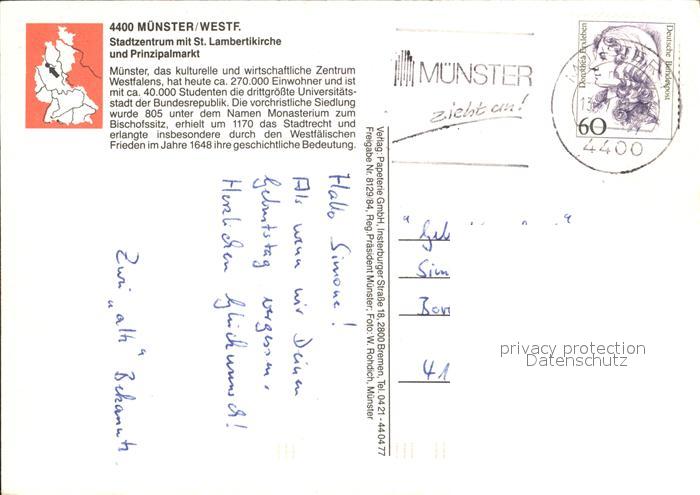 4400 MÜNSTER/WESTF.
Stadtzentrum mit St. Lambertikirche
und Prinzipalmarkt
Münster, das kulturelle und wirtschaftliche Zentrum
Westfalens, hat heute ca. 270.000 Einwohner und ist
mit ca. 40.000 Studenten die drittgrößte Universitäts-
stadt der Bundesrepublik. Die vorchristliche Siedlung
wurde 805 unter dem Namen Monasterium zum
Bischofssitz, erhielt um 1170 das Stadtrecht und
erlangte insbesondere durch den Westfälischen
Frieden im Jahre 1648 ihre geschichtliche Bedeutung.
Hallo Simone!
Als wenn wir Deinen
Geburtstag vergessen.
Herzlichen Glückwunsch!
Zwei "alte" Bekannte.
Verlag: Papeterie GmbH, Insterburger Straße 18, 2800 Bremen, Tel. 0421-440477
Freigabe Nr. 8129/84, Reg.Präsident Münster; Foto: W. Rohdich, Münster
MÜNSTER
zieht an!
Dorothea Erxleben
Deutsche Bundespost
60
13
4400
Geb
Sim
Bor
41
privacy protection
Datenschutz